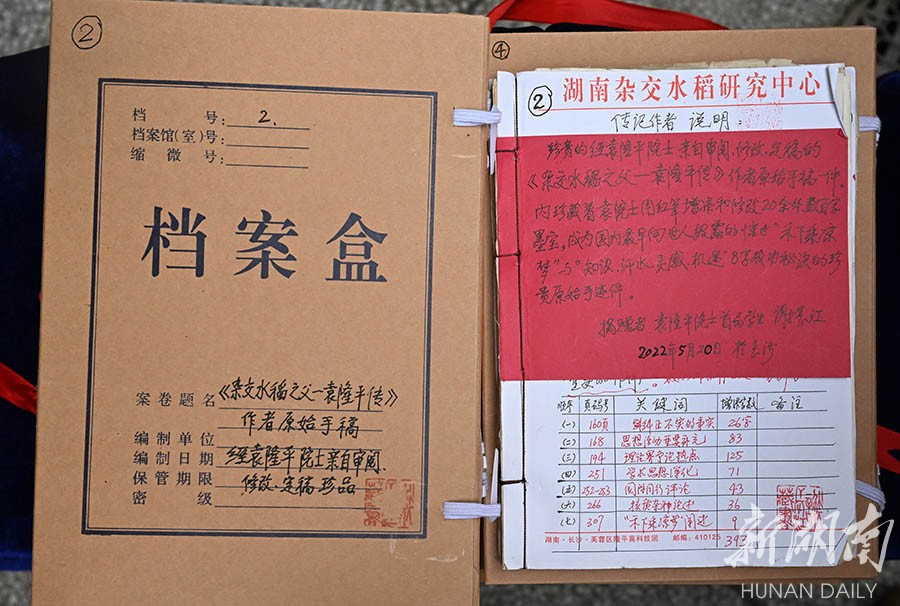 ②
档号：2.
档案馆(室)号：
缩微号：
档案盒
案卷题名 《杂交水稻之父—袁隆平传》
作者原始手稿
编制单位
编制日期 经袁隆平院士亲自审阅、
保管期限 修改、定稿珍品
密级
④
② 湖南杂交水稻研究中心
传记作者说明：
珍贵的经袁隆平院士亲自审阅、修改、定稿的
《杂交水稻之父—袁隆平传》作者原始手稿一件。
内珍藏着袁院士用红笔增添和修改20余处数百字
墨宝，成为国内最早向世人披露的惊世"禾下乘凉
梦"与"知识、汗水、灵感、机遇"8字成功秘诀的珍
贵原始手迹件。
捐赠者 袁隆平院士首届学生 谢长江
2022年5月20日 於长沙
顺序 页码号 关键词 增添字数 备注
(一) 160页 纠正不实的事实 26字
(二) 168 思想活动 83
(三) 194 理论界争论热点 125
(四) 251 学术思想演化 71
(五) 252-253 国际同行评论 43
(六) 266 36
(七) 307 "禾下乘凉梦"阐述 9
393
湖南·长沙·芙蓉区隆平高科技园 邮编：410125
新湖南
HUNAN DAILY